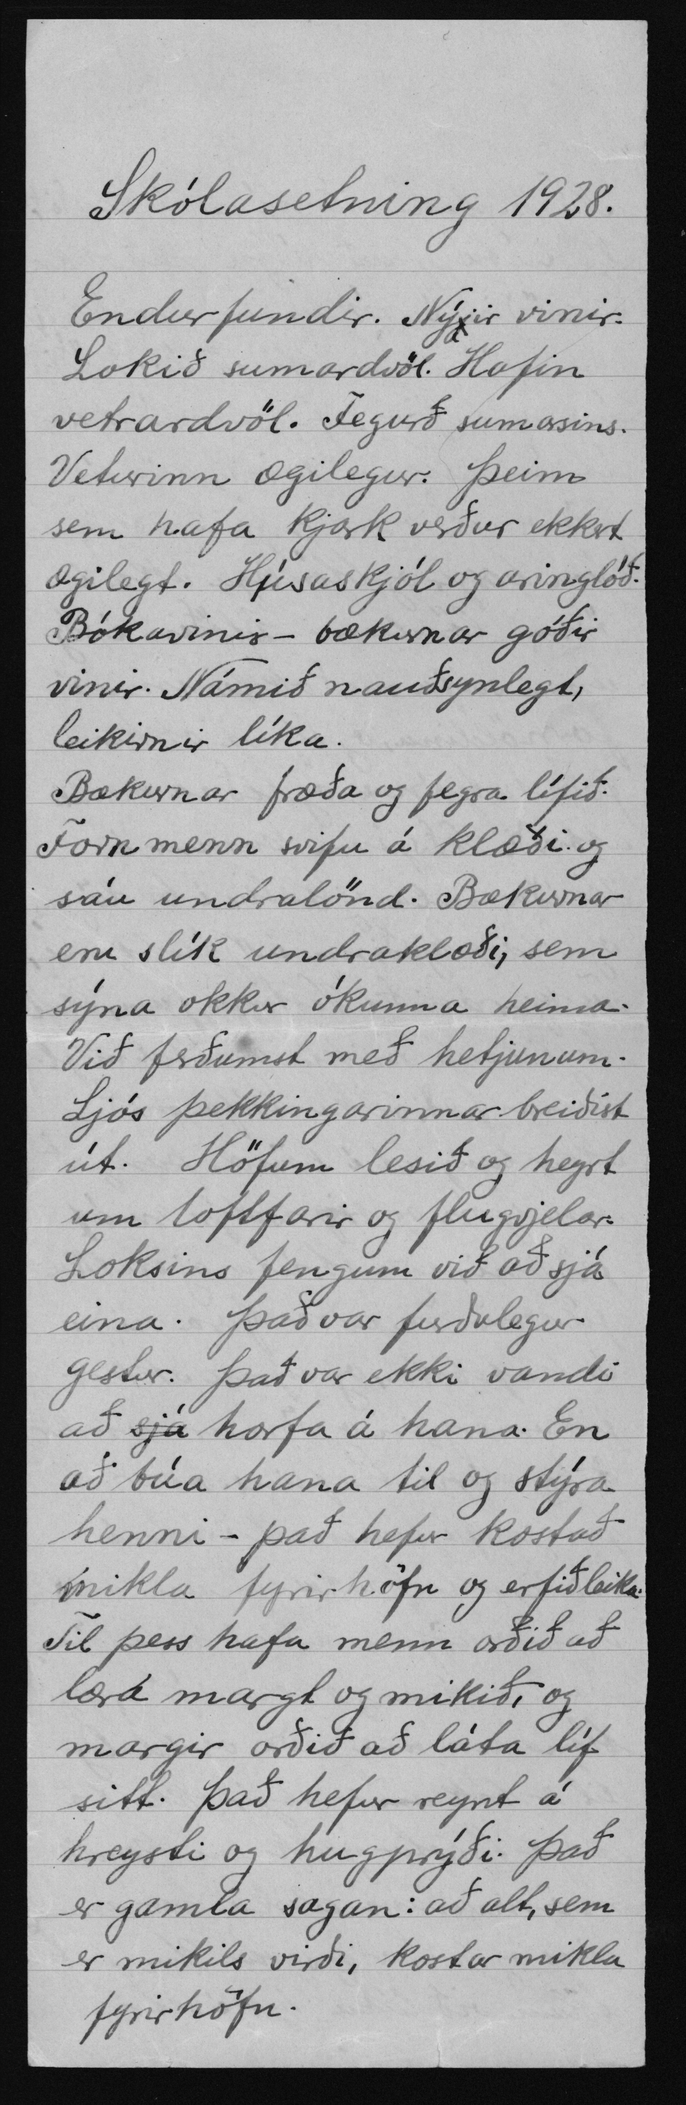 Skólasetning 1928.
Endurfundir. Nýir vinir.
Lokið sumardvöl. Hafin
vetrardvöl. Fegurð sumarsins.
Veturinn ægilegur. Þeim
sem hafa kjark verður ekkert
ægilegt. Húsaskjól og aringlóð.
Bókavinir - bækurnar góðir
vinir. Námið nauðsynlegt,
leikirnir líka.
Bækurnar fræða og fegra lífið.
Fornmenn svifu á klæði og
sáu undralönd. Bækurnar
eru slík undraklæði, sem
sýna okkur ókunna heima.
Við ferðumst með hetjunum.
Ljós þekkingarinnar breiðist
út. Höfum lesið og heyrt
um loftfarir og flugvjelar.
Loksins fengum við að sjá
eina. Það var furðulegur
gestur. Það var ekki vandi
að sjá horfa á hana. En
að búa hana til og stýra
henni - það hefur kostað
mikla fyrirhöfn og erfiðleika.
Til þess hafa menn orðið að
læra margt og mikið, og
margir orðið að láta líf
sitt. Það hefur reynt á
hreysti og hugprýði. Það
er gamla sagan: að alt, sem
er mikils virði, kostar mikla
fyrirhöfn.